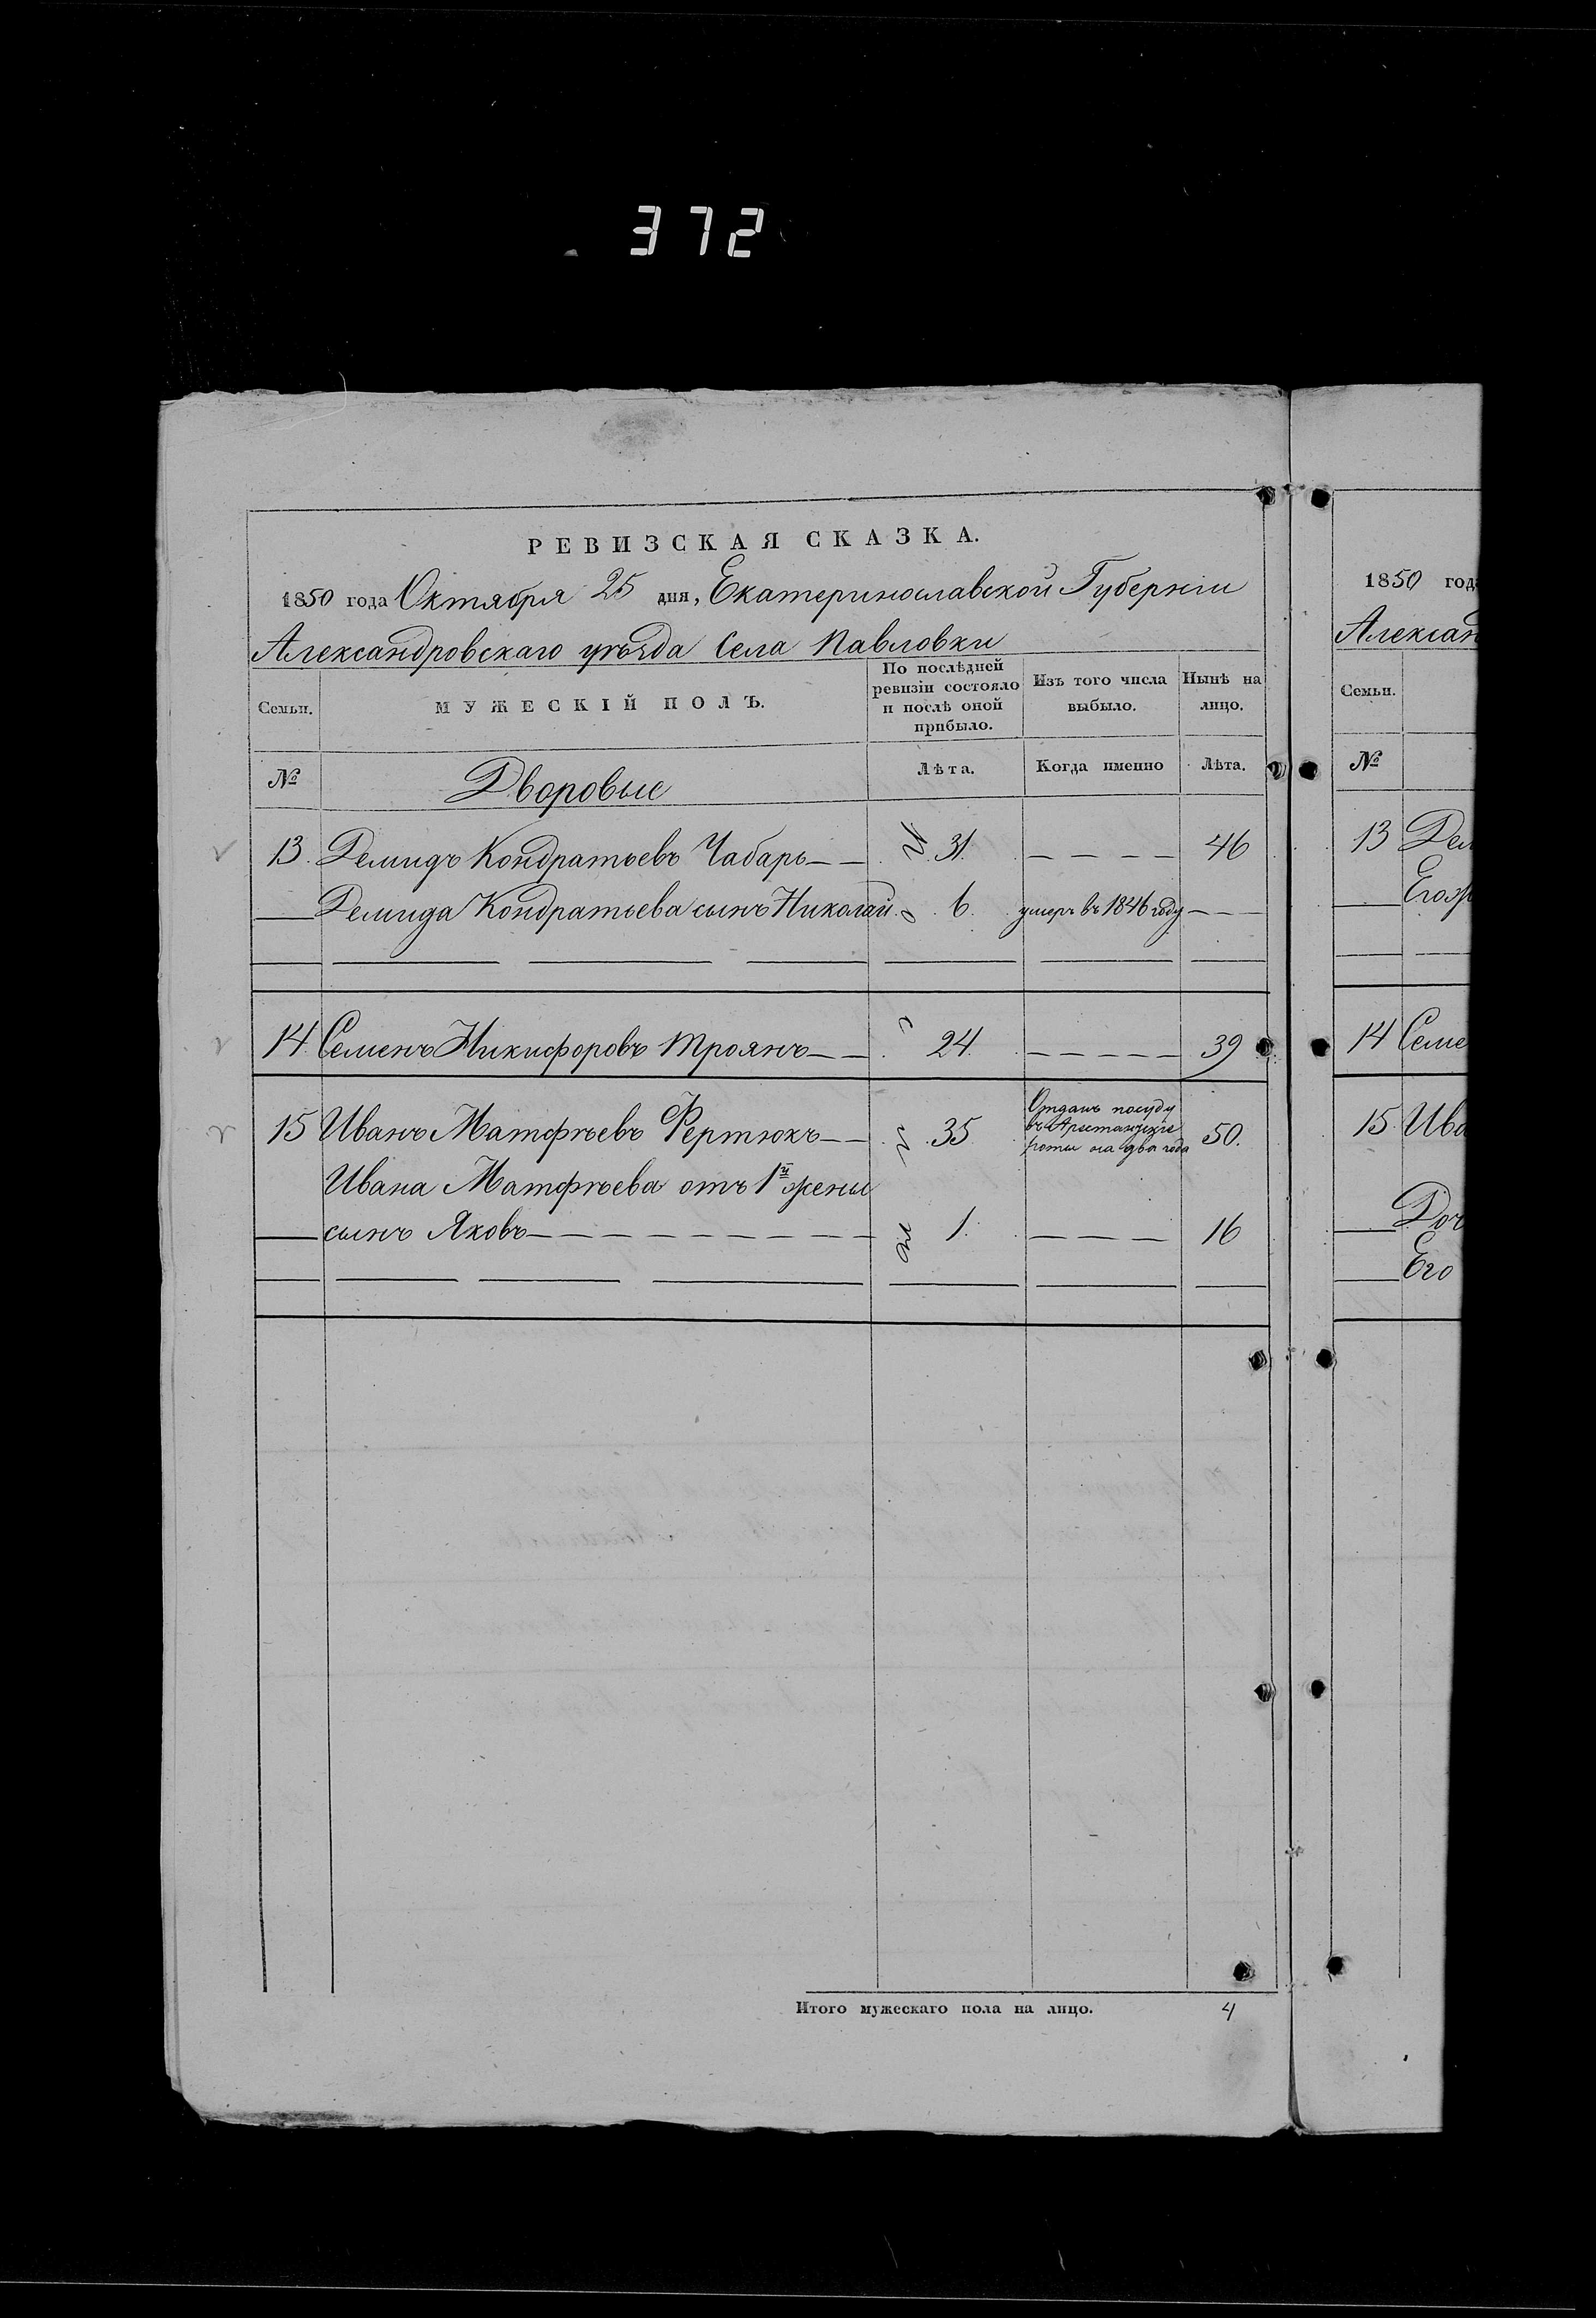 372
РЕВИЗСКАЯ СКАЗКА.
1850 года Октября 25 дня, Екатеринославской Губернiи
Александровскаго уѣзда Села Павловки
Семьи.
МУЖЕСКІЙ ПОЛЪ.
По послѣдней ревизіи состояло и послѣ оной прибыло.
Изъ того числа выбыло.
Нынѣ на лицо.
№
Дворовые
Лѣта.
Когда именно
Лѣта.
13. Демидъ Кондратьевъ Чабарь — — 31. — — — — 46
Демида Кондратьева сынъ Николай. 6. умеръ въ 1846 году — — —
14. Семенъ Никифоровъ Троянъ — — 24. — — — — — 39
15 Иванъ Матфѣевъ Фертюкъ — — 35. Отданъ посуду въ Арестанскіе роты на два года 50.
Ивана Матфѣева отъ 1й жены
сынъ Яковъ — — — — — — — — — 1. — — — — 16
Итого мужескаго пола на лицо. 4
1850 год
Александ
Семьи.
№
13 Дем
Его ж
14 Семе
15. Ива
Доч
Его